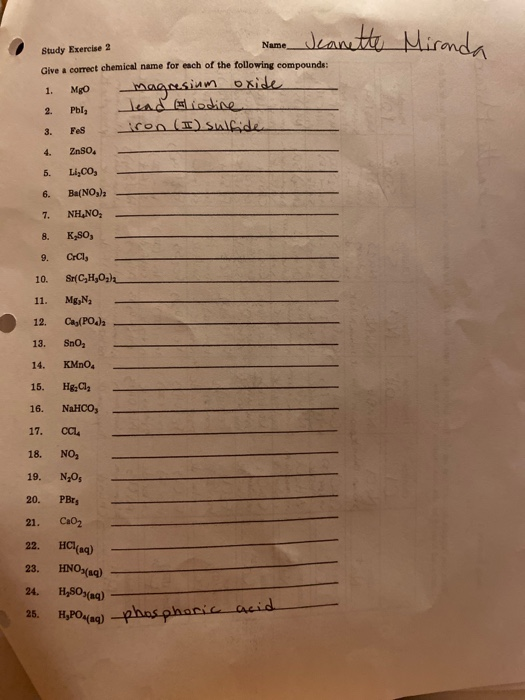 Study Exercise 2 Name Jeanette Miranda
Give a correct chemical name for each of the following compounds:
1. MgO magnesium oxide
2. PbI₂ lead (II) iodine
3. FeS iron (II) sulfide
4. ZnSO₄
5. Li₂CO₃
6. Ba(NO₃)₂
7. NH₄NO₂
8. K₂SO₃
9. CrCl₃
10. Sr(C₂H₃O₂)₂
11. Mg₃N₂
12. Ca₃(PO₄)₂
13. SnO₂
14. KMnO₄
15. Hg₂Cl₂
16. NaHCO₃
17. CCl₄
18. NO₂
19. N₂O₅
20. PBr₅
21. CaO₂
22. HCl(aq)
23. HNO₃(aq)
24. H₂SO₃(aq)
25. H₃PO₄(aq) phosphoric acid